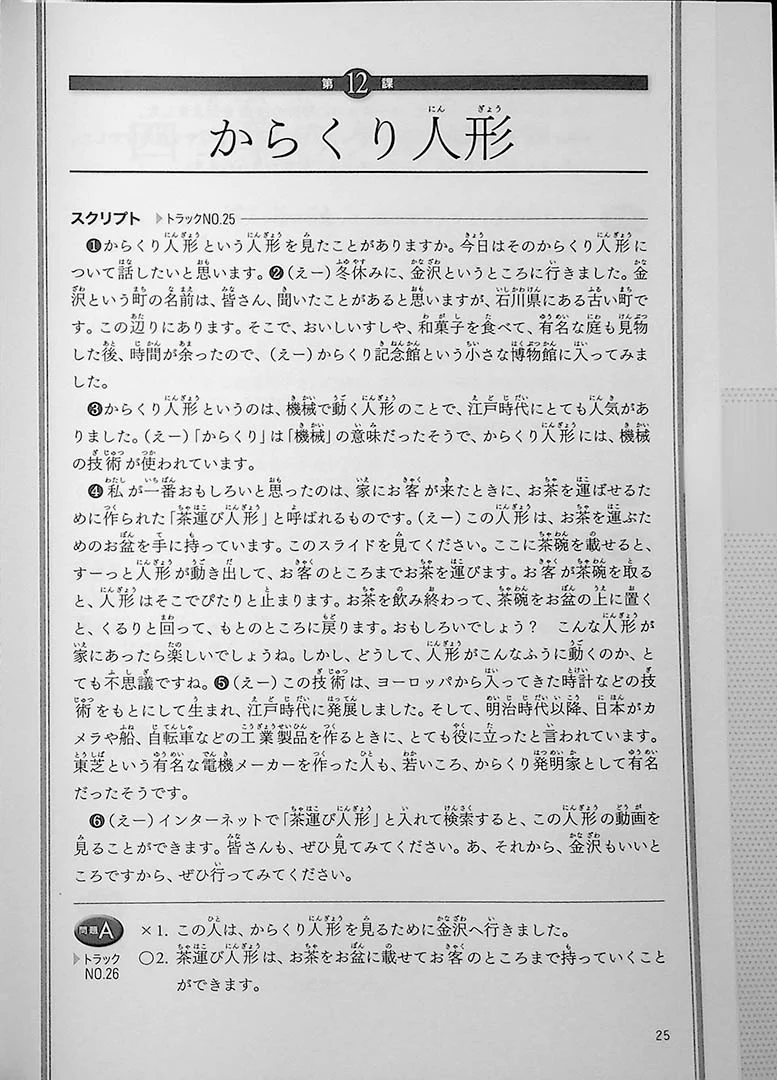 第12課
からくり人形
スクリプト ▷トラックNO.25
❶からくり人形という人形を見たことがありますか。今日はそのからくり人形に
ついて話したいと思います。❷(えー)冬休みに、金沢というところに行きました。金
沢という町の名前は、皆さん、聞いたことがあると思いますが、石川県にある古い町で
す。この辺りにあります。そこで、おいしいすしや、和菓子を食べて、有名な庭も見物
した後、時間が余ったので、(えー)からくり記念館という小さな博物館に入ってみま
した。
❸からくり人形というのは、機械で動く人形のことで、江戸時代にとても人気があ
りました。(えー)「からくり」は「機械」の意味だったそうで、からくり人形には、機械
の技術が使われています。
❹私が一番おもしろいと思ったのは、家にお客が来たときに、お茶を運ばせるた
めに作られた「茶運び人形」と呼ばれるものです。(えー)この人形は、お茶を運ぶた
めのお盆を手に持っています。このスライドを見てください。ここに茶碗を載せると、
すーっと人形が動き出して、お客のところまでお茶を運びます。お客が茶碗を取る
と、人形はそこでぴたりと止まります。お茶を飲み終わって、茶碗をお盆の上に置く
と、くるりと回って、もとのところに戻ります。おもしろいでしょう? こんな人形が
家にあったら楽しいでしょうね。しかし、どうして、人形がこんなふうに動くのか、と
ても不思議ですね。❺(えー)この技術は、ヨーロッパから入ってきた時計などの技
術をもとにして生まれ、江戸時代に発展しました。そして、明治時代以降、日本がカ
メラや船、自転車などの工業製品を作るときに、とても役に立ったと言われています。
東芝という有名な電機メーカーを作った人も、若いころ、からくり発明家として有名
だったそうです。
❻(えー)インターネットで「茶運び人形」と入れて検索すると、この人形の動画を
見ることができます。皆さんも、ぜひ見てみてください。あ、それから、金沢もいいと
ころですから、ぜひ行ってみてください。
問題A ×1. この人は、からくり人形を見るために金沢へ行きました。
▷トラック NO.26 ○2. 茶運び人形は、お茶をお盆に載せてお客のところまで持っていくこと
ができます。
25